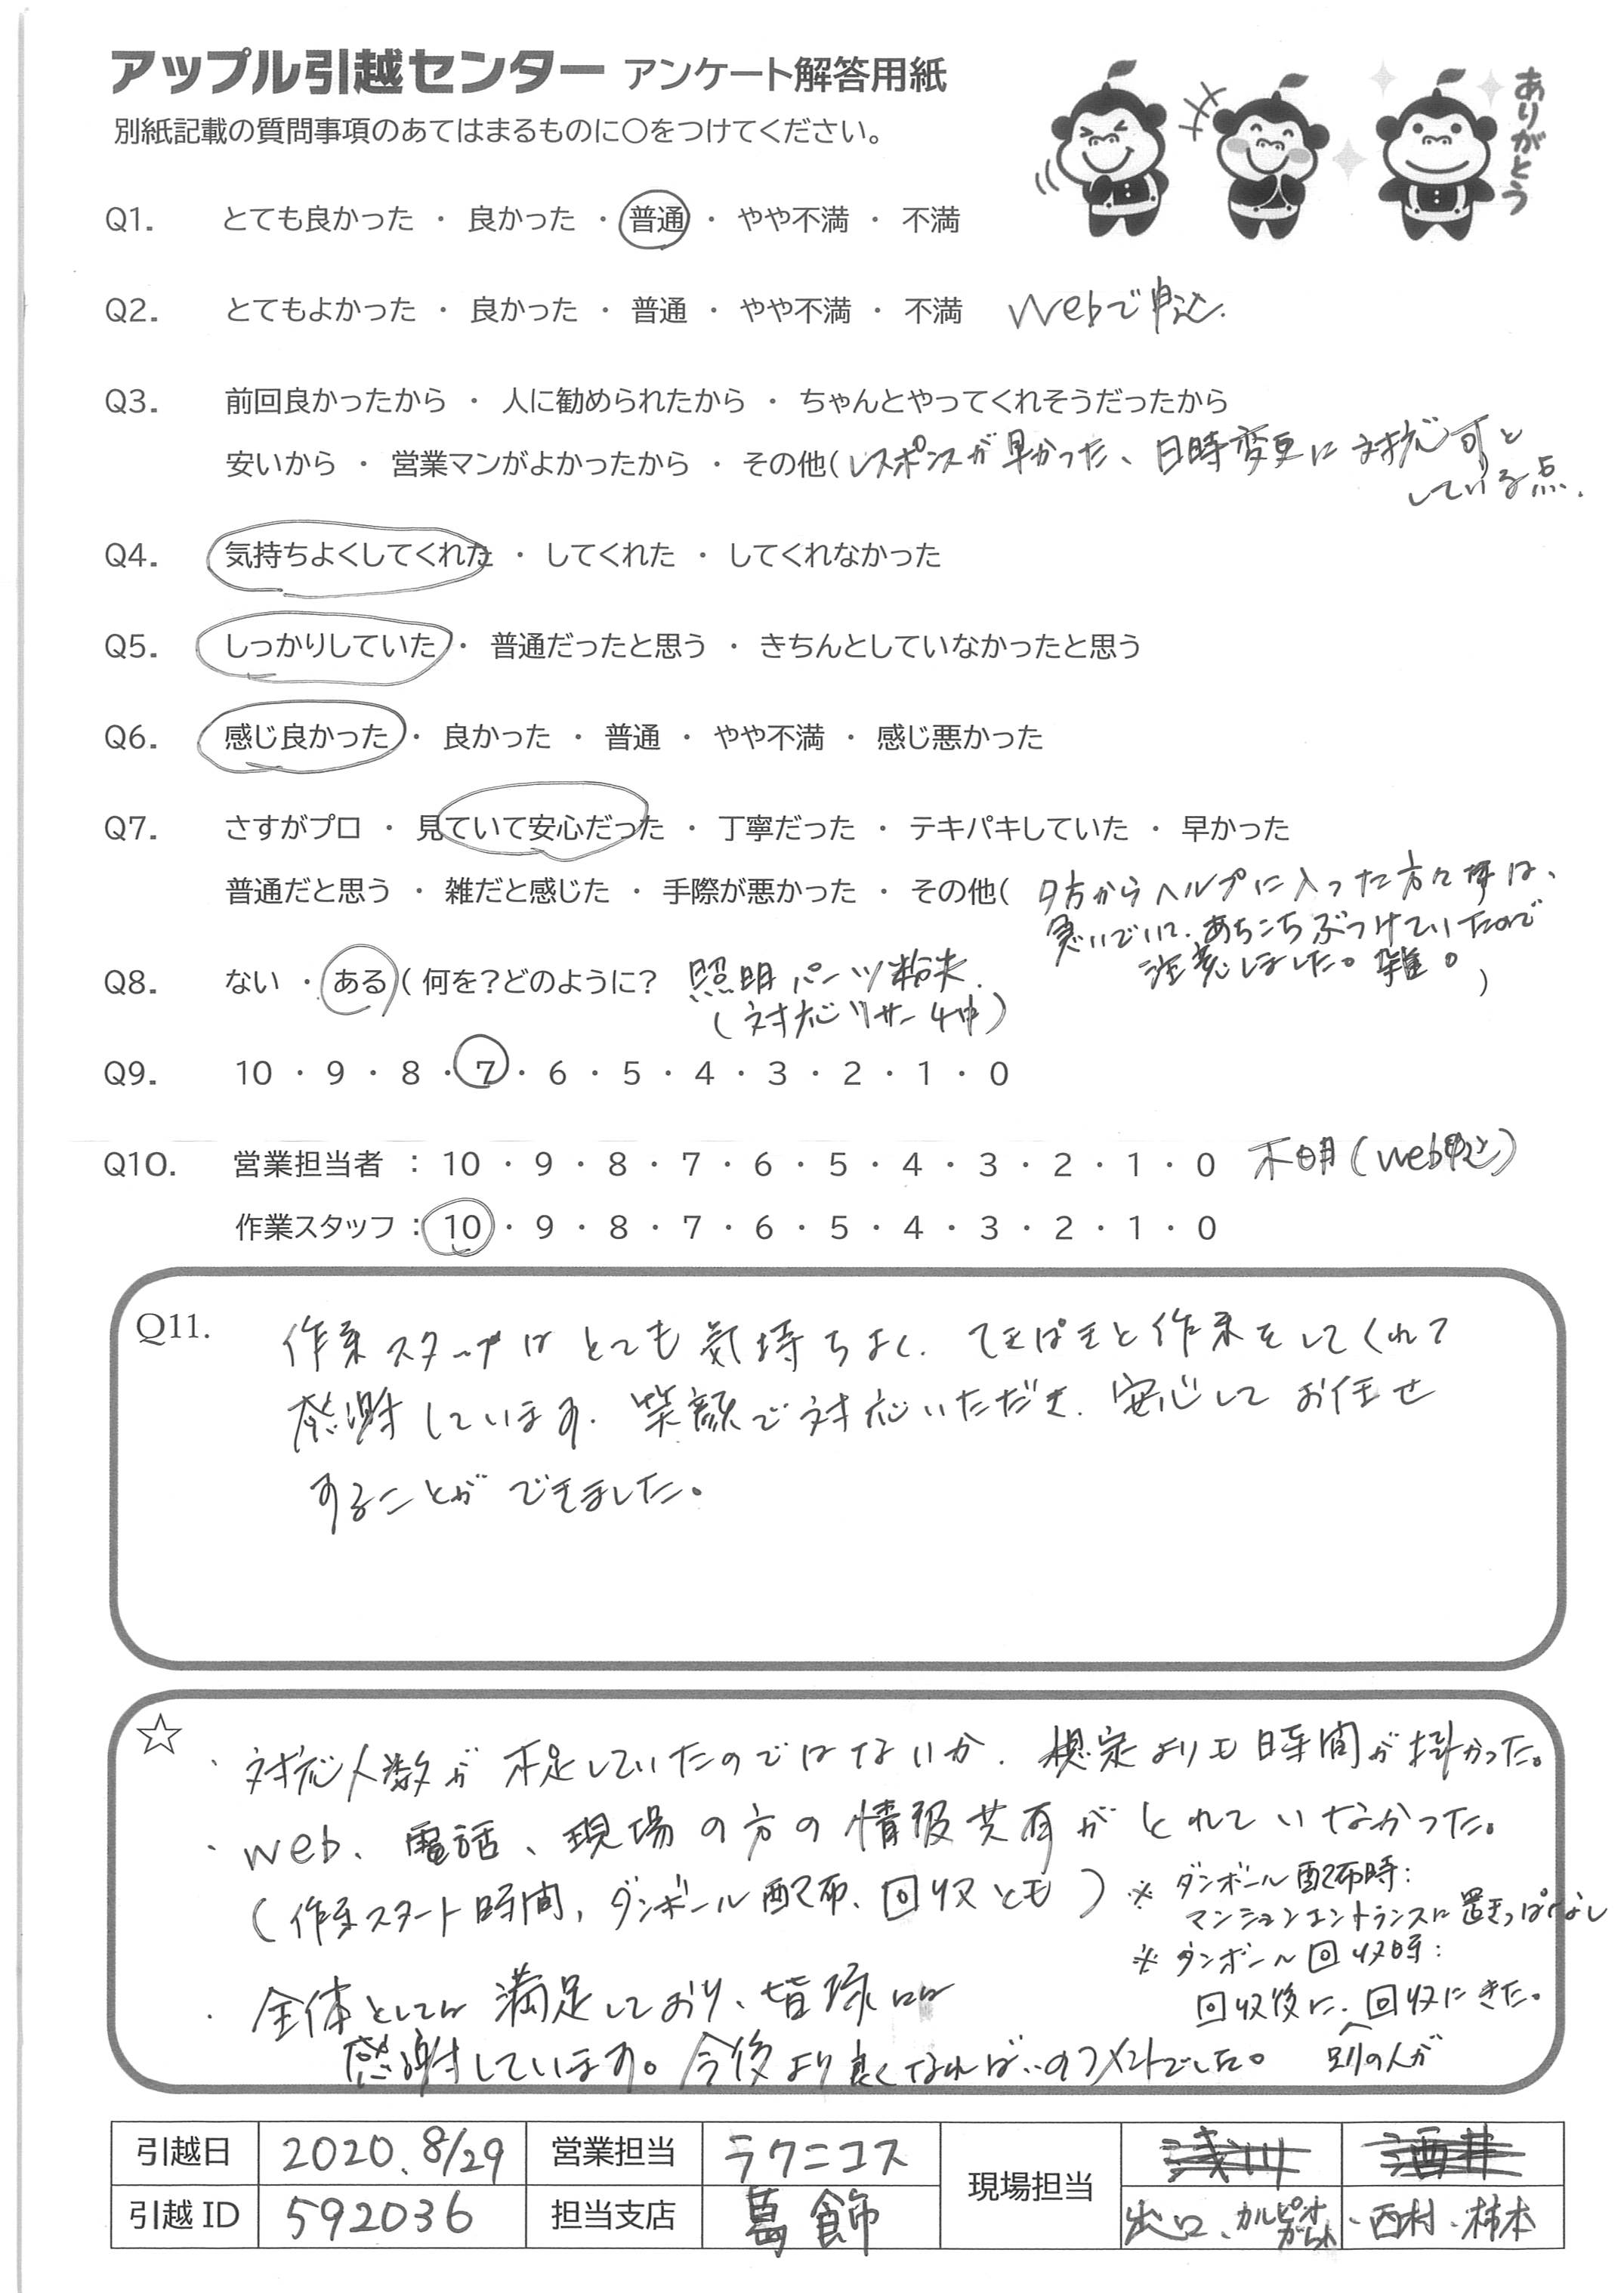 アップル引越センター アンケート解答用紙
別紙記載の質問事項のあてはまるものに○をつけてください。
ありがとう
Q1. とても良かった ・ 良かった ・ 普通 ・ やや不満 ・ 不満
Q2. とてもよかった ・ 良かった ・ 普通 ・ やや不満 ・ 不満 Webで申込.
Q3. 前回良かったから ・ 人に勧められたから ・ ちゃんとやってくれそうだったから
安いから ・ 営業マンがよかったから ・ その他( レスポンスが早かった、日時変更に対応可と
している点.
Q4. 気持ちよくしてくれた ・ してくれた ・ してくれなかった
Q5. しっかりしていた ・ 普通だったと思う ・ きちんとしていなかったと思う
Q6. 感じ良かった ・ 良かった ・ 普通 ・ やや不満 ・ 感じ悪かった
Q7. さすがプロ ・ 見ていて安心だった ・ 丁寧だった ・ テキパキしていた ・ 早かった
普通だと思う ・ 雑だと感じた ・ 手際が悪かった ・ その他( 夕方からヘルプに入った方々様は、
急いでいて、あちこちぶつけていたので
注意しました。雑。 )
Q8. ない ・ ある ( 何を?どのように? 照明パーツ粉失.
(対応リサーチ中)
Q9. 10 ・ 9 ・ 8 ・ 7 ・ 6 ・ 5 ・ 4 ・ 3 ・ 2 ・ 1 ・ 0
Q10. 営業担当者 : 10 ・ 9 ・ 8 ・ 7 ・ 6 ・ 5 ・ 4 ・ 3 ・ 2 ・ 1 ・ 0 不明(web申込)
作業スタッフ : 10 ・ 9 ・ 8 ・ 7 ・ 6 ・ 5 ・ 4 ・ 3 ・ 2 ・ 1 ・ 0
Q11. 作業スタッフはとても気持ちよく、てきぱきと作業をしてくれて
感謝しています。笑顔で対応いただき、安心してお任せ
することができました。
☆ ・対応人数が不足していたのではないか. 想定よりも時間が掛かった。
・web、電話、現場の方の情報共有がとれていなかった。
(作業スタート時間, ダンボール配布、回収とも)
※ ダンボール配布時:
マンションエントランスに置きっぱなし
※ ダンボール回収時:
回収後に、別の人が回収にきた。
・全体としては満足しており、皆様には
感謝しています。今後より良くなれば..のコメントでした。
引越日 2020.8/29 営業担当 ラクニコス 現場担当 浅川 酒井
引越ID 592036 担当支店 葛飾 出口、カルピオ ・西村・柿本